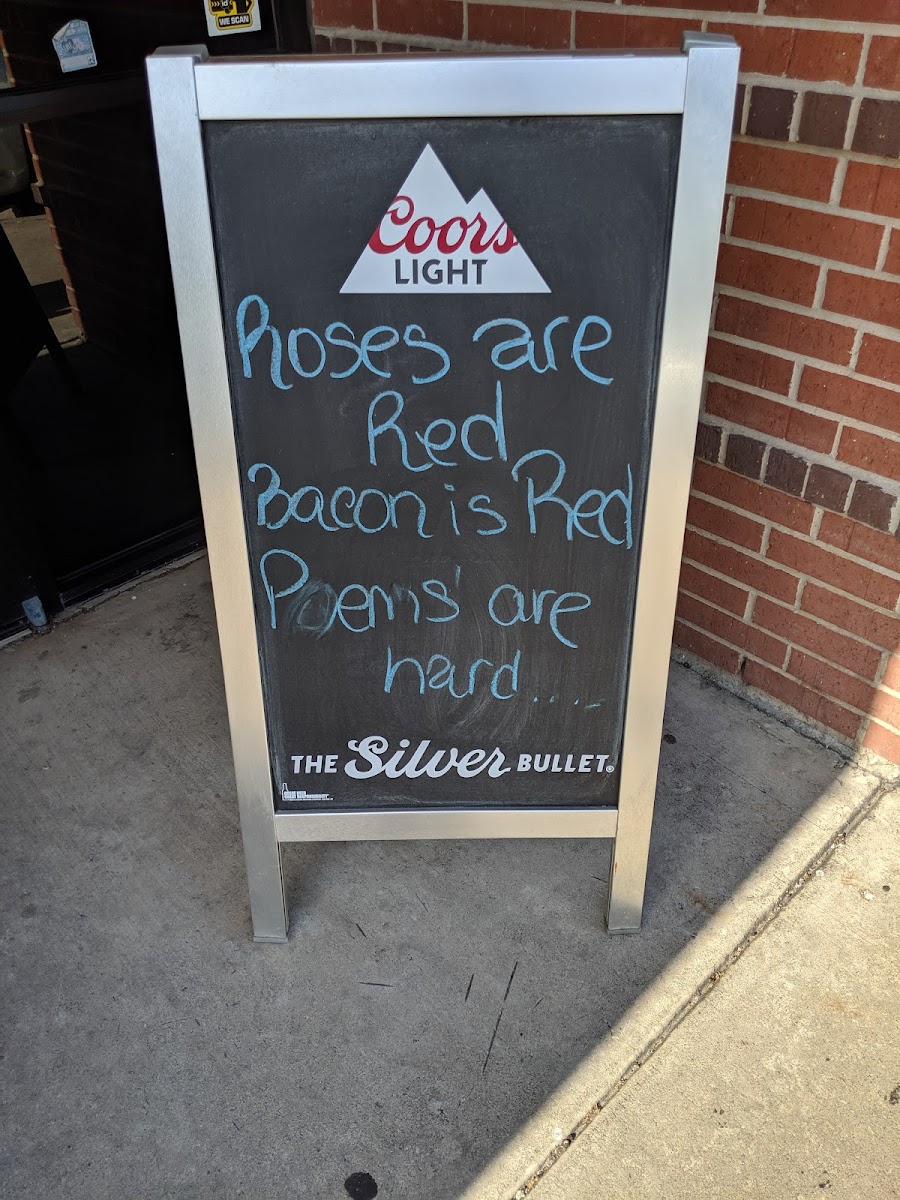 id
WE SCAN
Coors
LIGHT
Roses are
Red
Bacon is Red
Poems' are
hard.....
THE Silver BULLET®